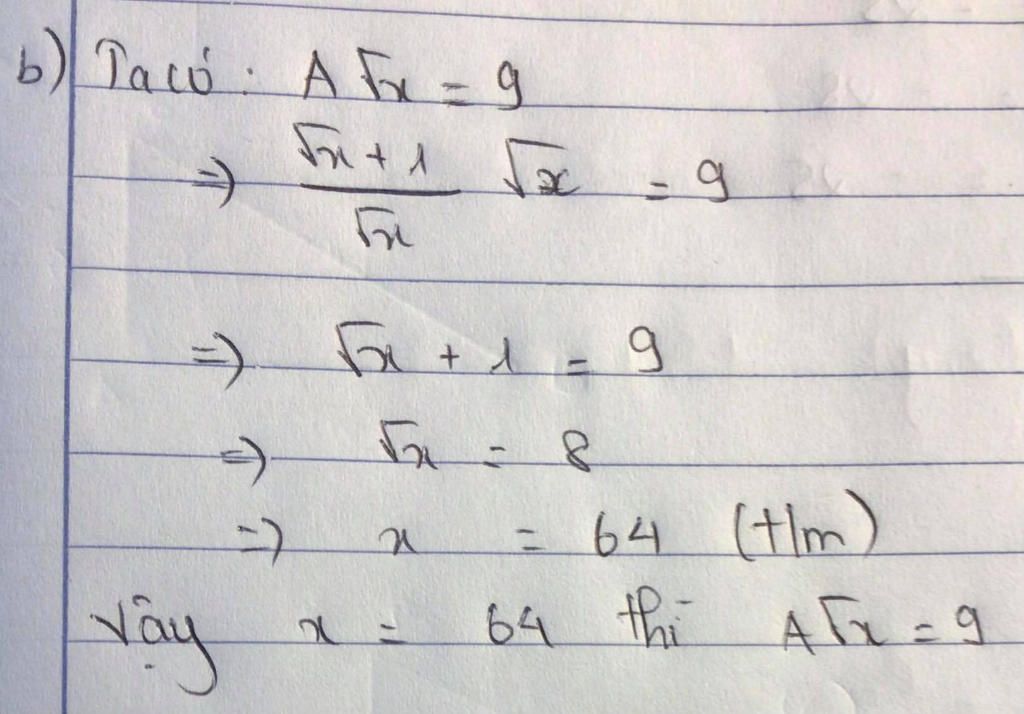 b) Ta có : A √x = 9
=> (√x + 1)/√x √x = 9
=> √x + 1 = 9
=> √x = 8
=> x = 64 (t/m)
Vậy x = 64 thì A √x = 9